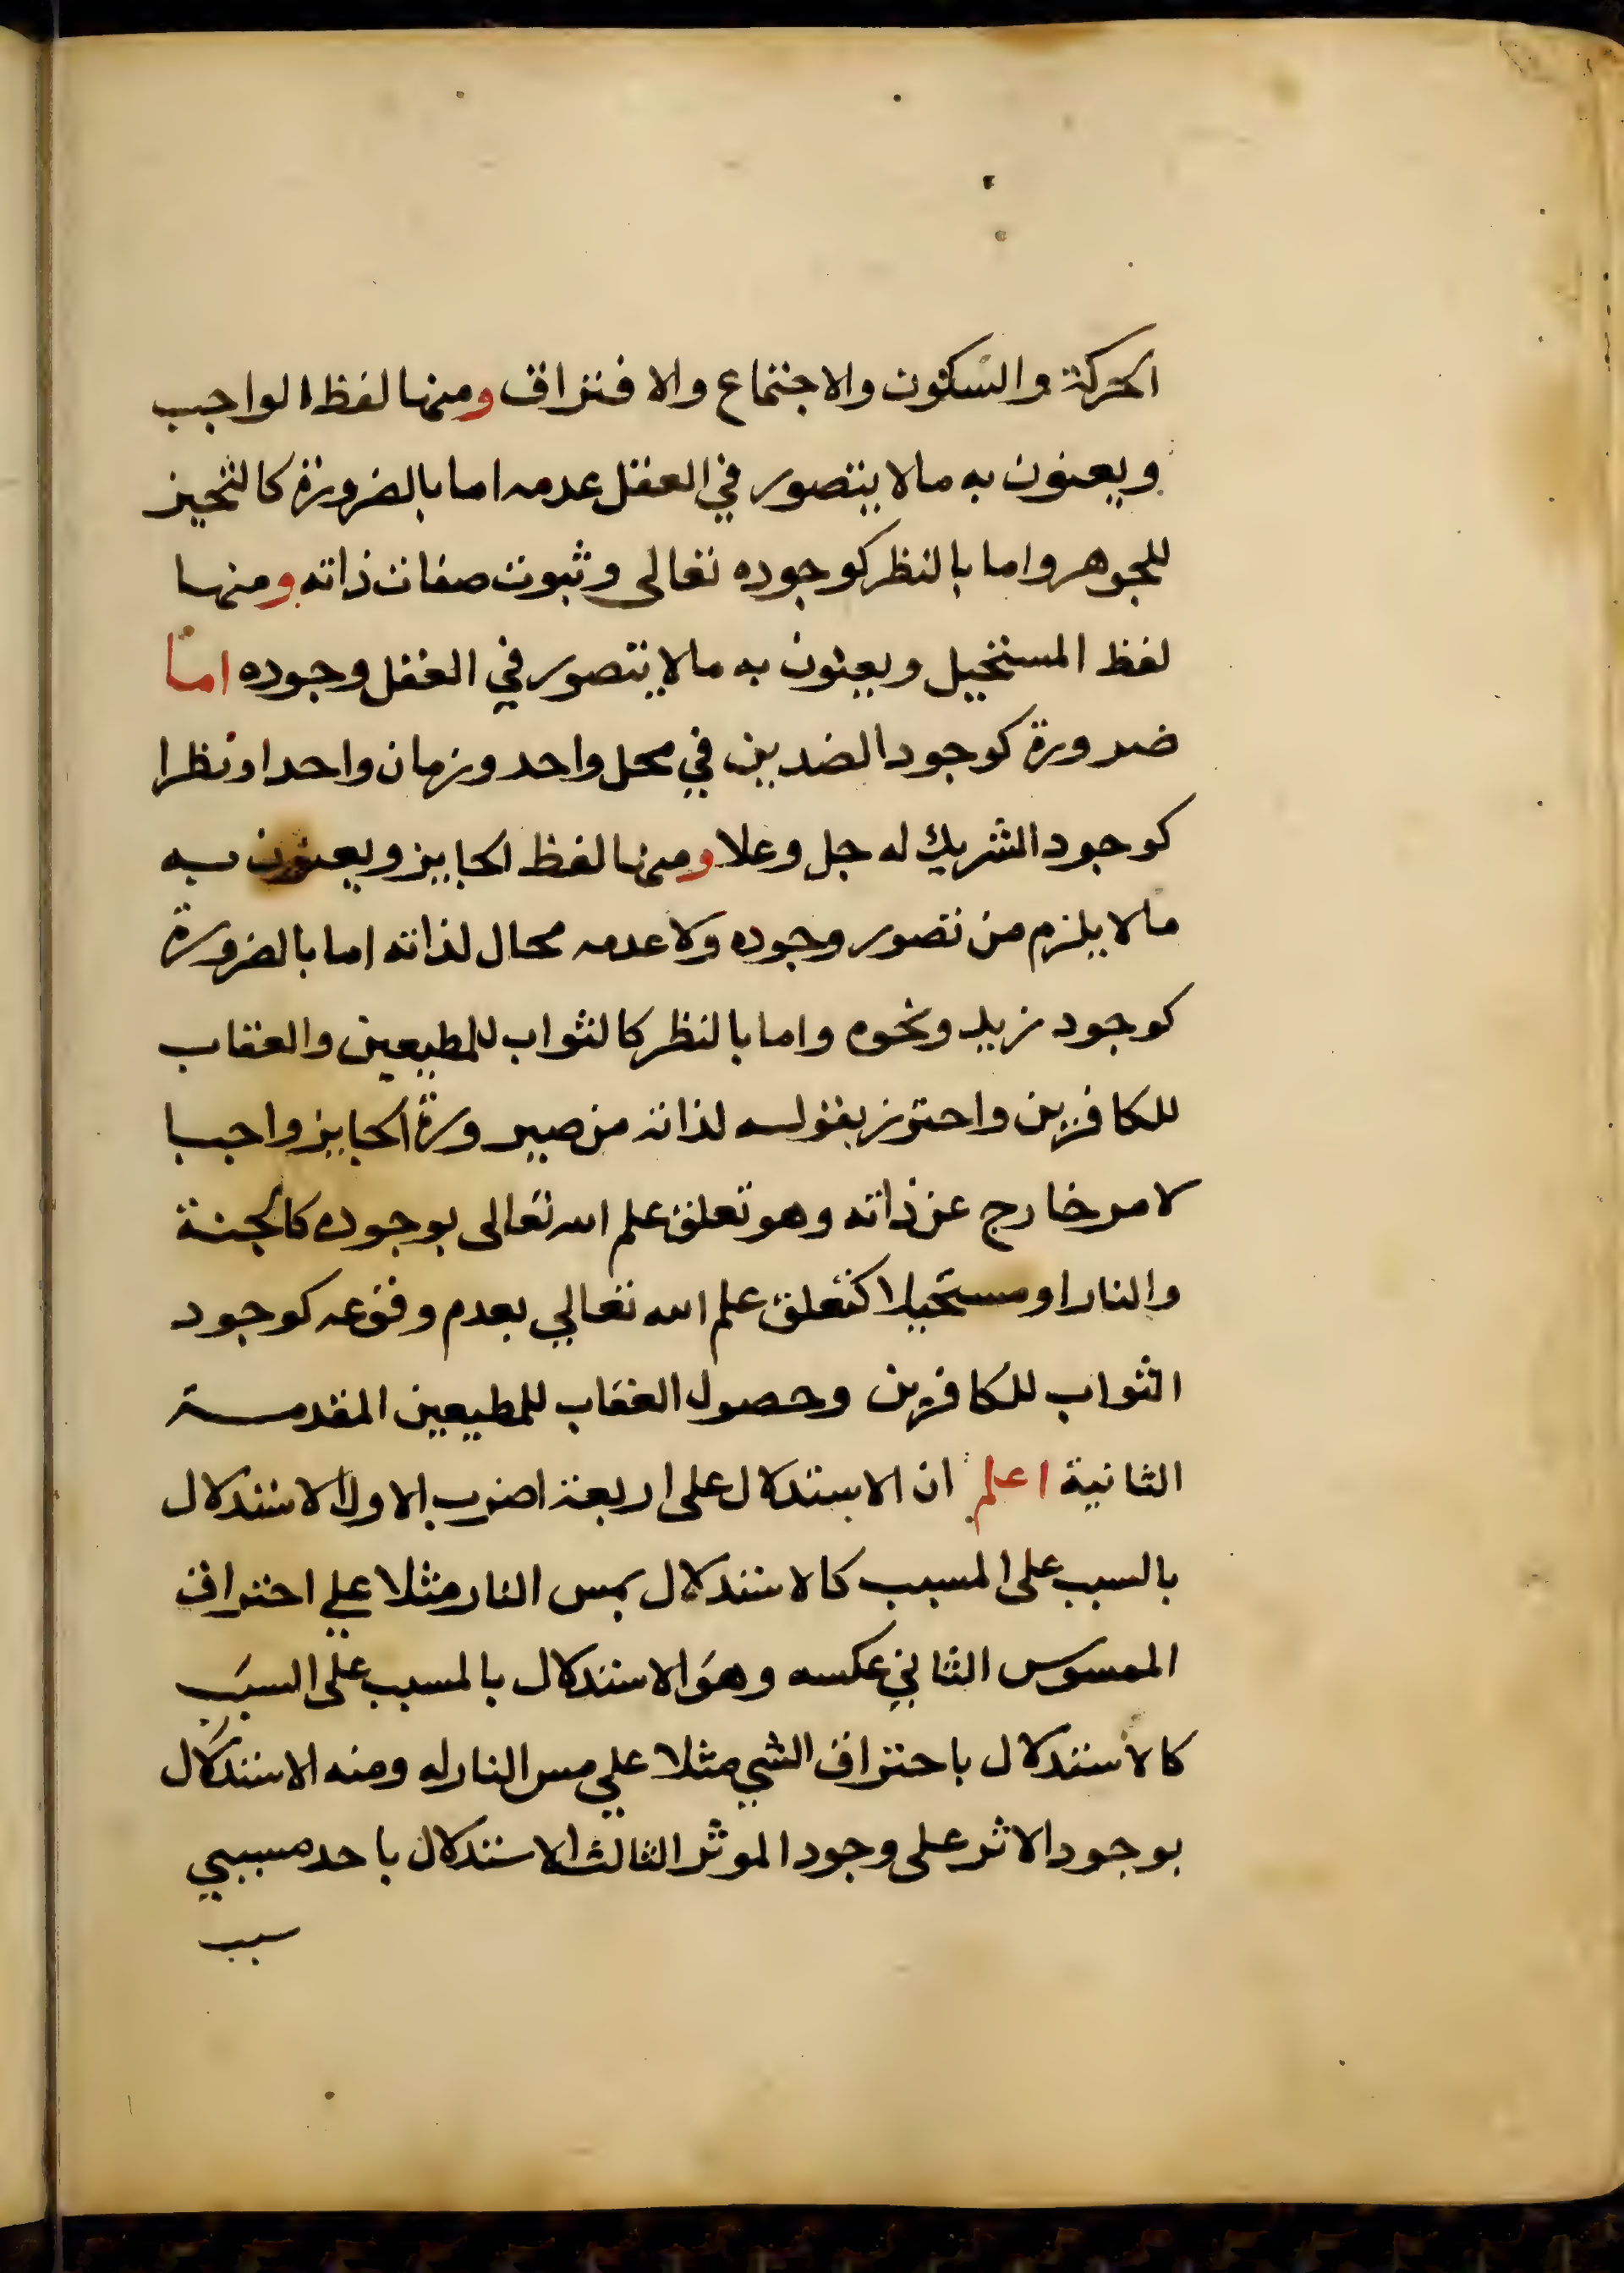 الحركة والسكون والاجتماع والافتراق ومنها لفظ الواجب
ويعنون به ما لا يتصور في العقل عدمه اما بالضرورة كالتحيز
للجوهر واما بالنظر كوجوده تعالى وثبوت صفات ذاته ومنها
لفظ المستحيل ويعنون به ما لا يتصور في العقل وجوده اما
ضرورة كوجود الضدين في محل واحد وزمان واحد او نظرا
كوجود الشريك له جل وعلا ومنها لفظ الجايز ويعنون به
ما لا يلزم من تصور وجوده ولا عدمه محال لذاته اما بالضرورة
كوجود زيد ونحوه واما بالنظر كالثواب للمطيعين والعقاب
للكافرين واحترز بقوله لذاته من صيرورة الجايز واجبا
لامر خارج عن ذاته وهو تعلق علم الله تعالى بوجوده كالجنة
والنار او مستحيلا كتعلق علم الله تعالي بعدم وقوعه كوجود
الثواب للكافرين وحصول العقاب للمطيعين المقدمة
الثانية اعلم ان الاستدلال على اربعة اضرب الاول الاستدلال
بالسبب على المسبب كالاستدلال بمس النار مثلا علي احتراق
الممسوس الثاني عكسه وهو الاستدلال بالمسبب على السبب
كالاستدلال باحتراق الشي مثلا علي مس النار له ومنه الاستدلال
بوجود الاثر على وجود الموثر الثالث الاستدلال باحد مسببي
سبب